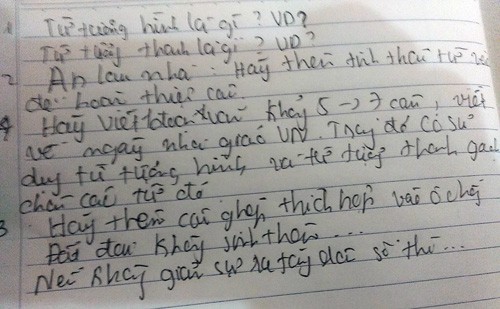 1 Từ tượng hình là gì? VD?
Từ tượng thanh là gì? VD?
2 lan nhà: Hãy thêm tình thái từ
để hoàn thiện câu
4 Hãy viết đoạn văn khoảng 5 -> 7 câu, viết
về ngày nhà giáo VN. Trong đó có sử
dụng từ tượng hình và từ tượng thanh gạch
chân các từ đó
3 Hãy thêm câu ghép thích hợp vào ô chống
không sinh than...
Nếu không gian sự ra tay thì...